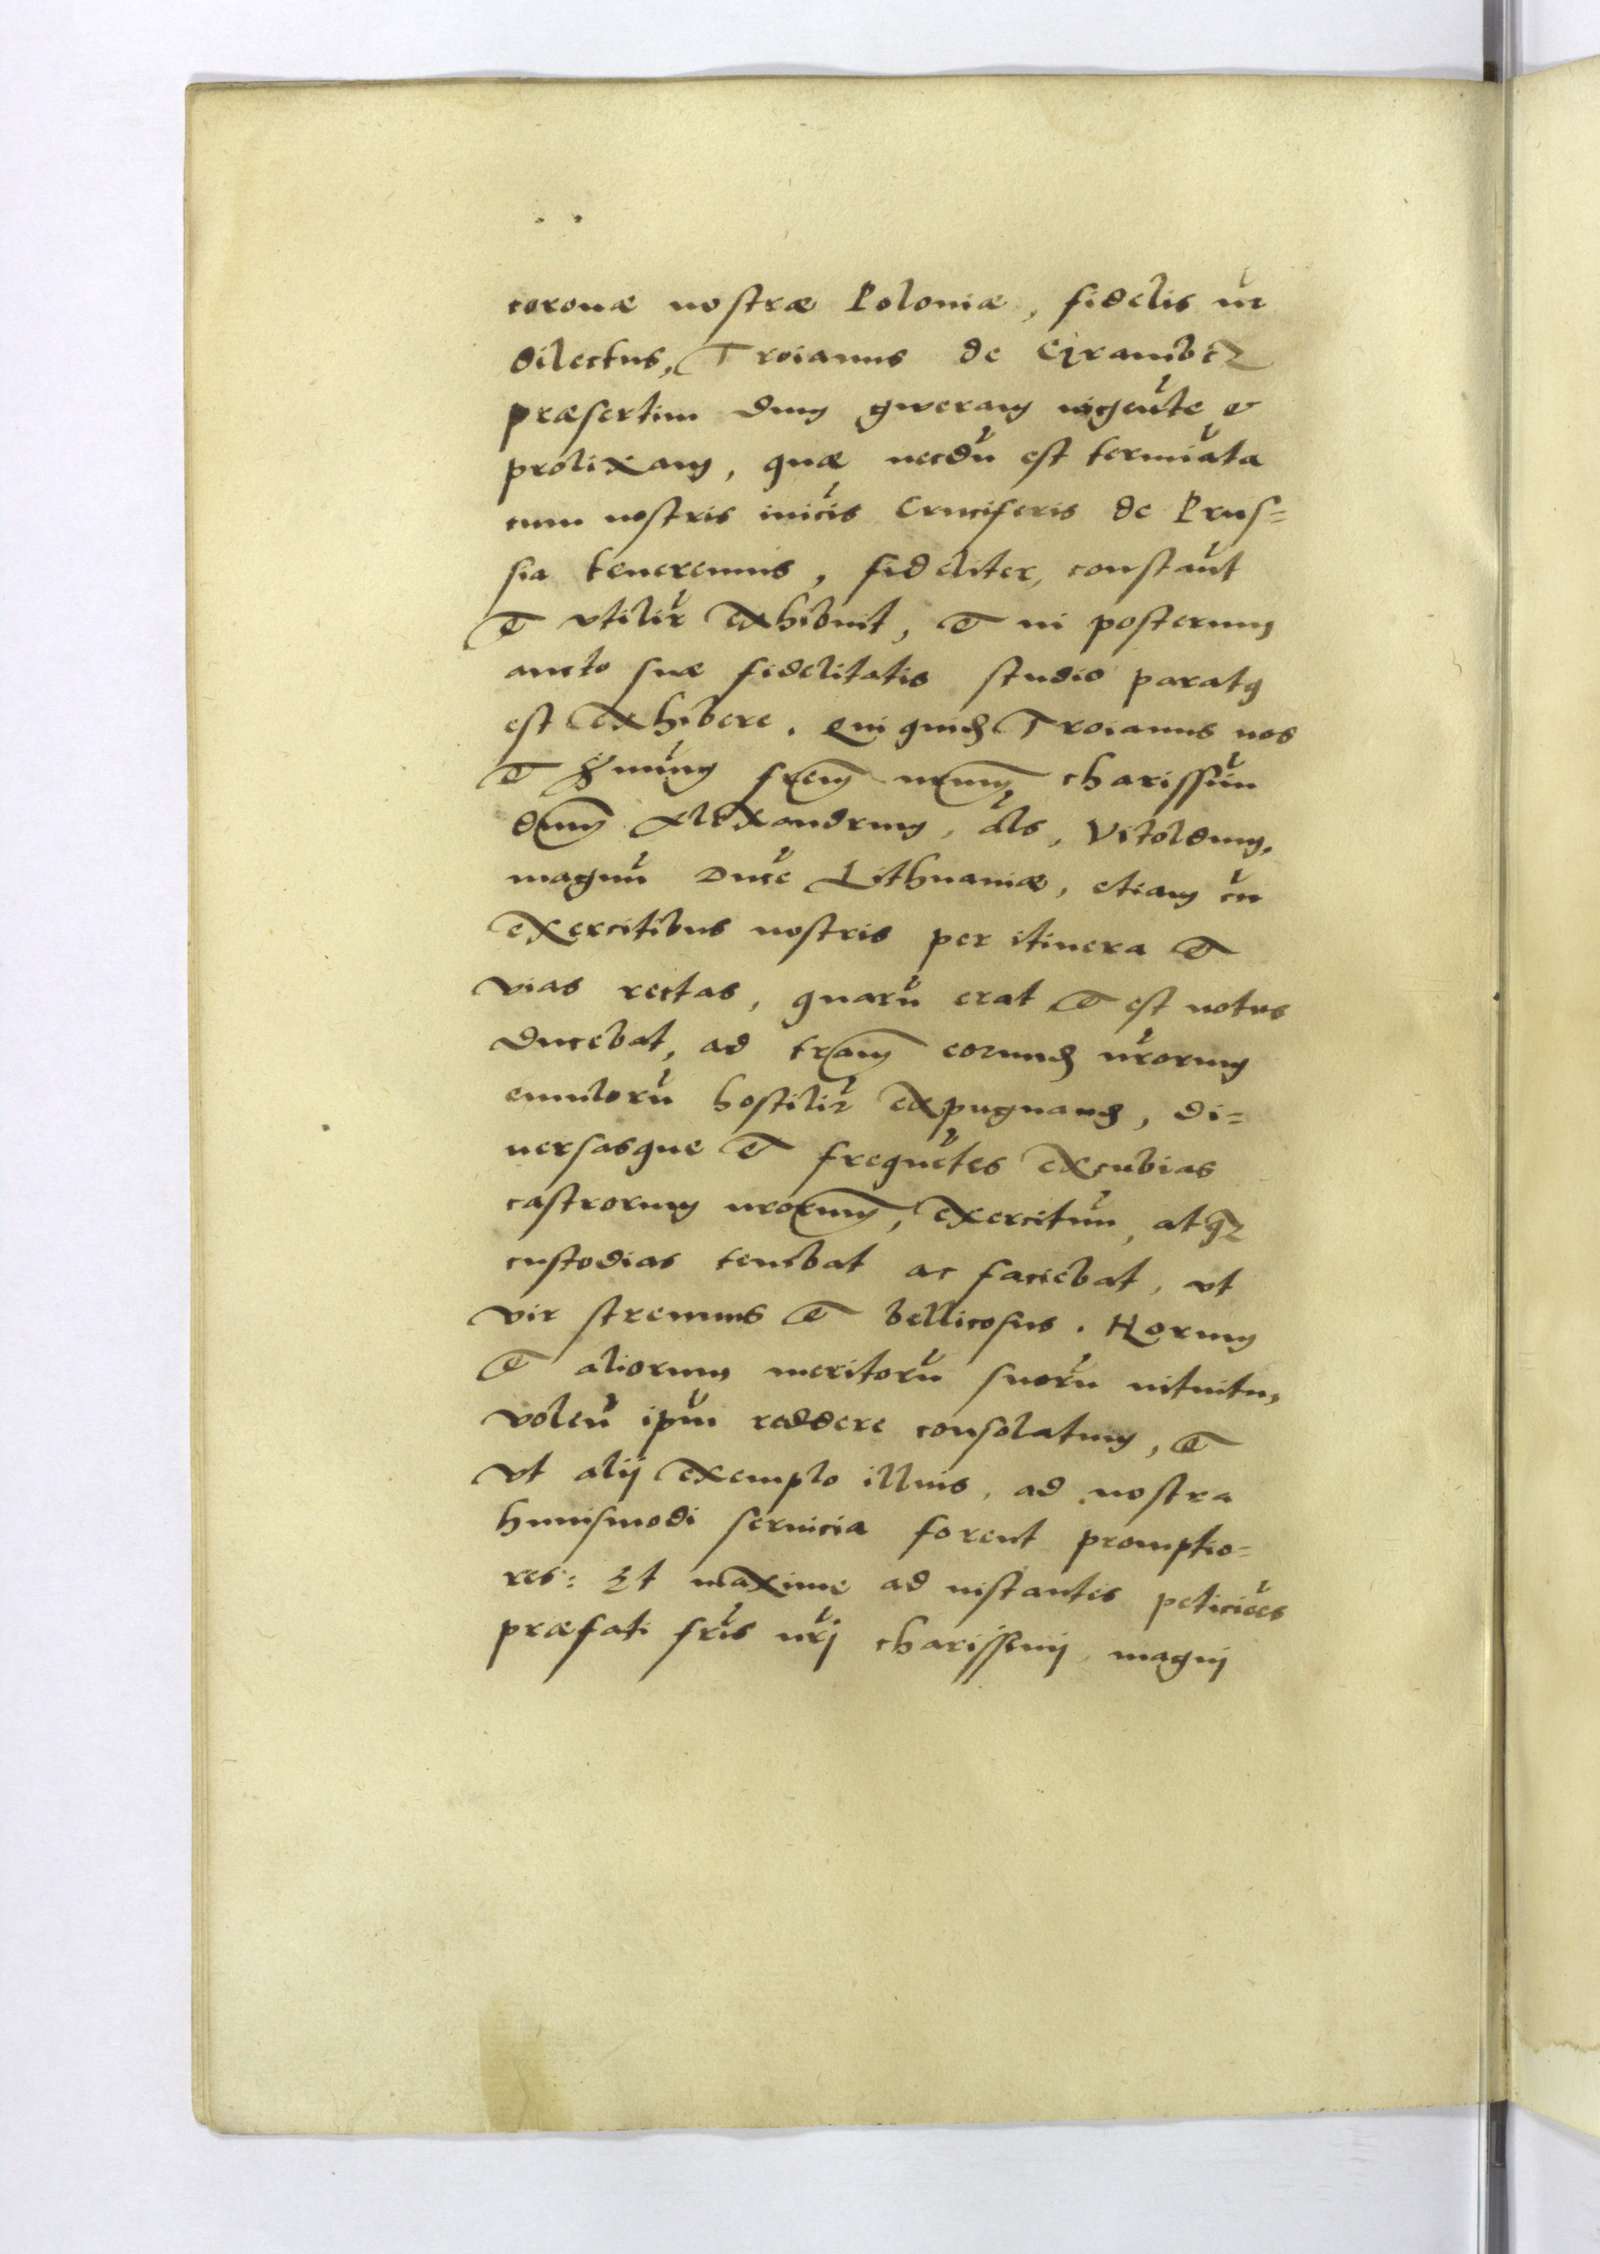 coronæ nostræ Poloniæ, fidelis nr̃
dilectus, Troianus de
præsertim dum gweram ingẽte &
prolixam, quæ necdũ est termĩata
cum nostris inĩcis Cruciferis de Prus=
sia teneremus, fideliter, constañt
& vtilir̃ exhibuit, & in posterum
aucto suæ fidelitatis studio paratq
est exhibere. Qui quid Troianus nos
& frem nrum charissim̃
dnum Alexandrum, als̃, Vitoldum,
magnũ Ducẽ Lithuaniæ, etiam cũ
exercitibus nostris per itinera &
vias rectas, quarũ erat & est notus
ducebat, ad tram eorund nr̃orum
emulorũ hostilir̃ expugnand, di=
uersasque & frequẽtes excubias
castrorum nrorum, exercituũ, atq
custodias tenebat ac faciebat, vt
vir strenuus & bellicosus. Horum
& aliorum meritorũ suorũ intuitu,
volen̄ ipm̃ reddere consolatum, &
vt alij exemplo illius, ad nostra
huiusmodi seruicia forent promptio=
res: Et maxime ad instantes peticiões
præfati fr̃is nr̃j charissimj magnj